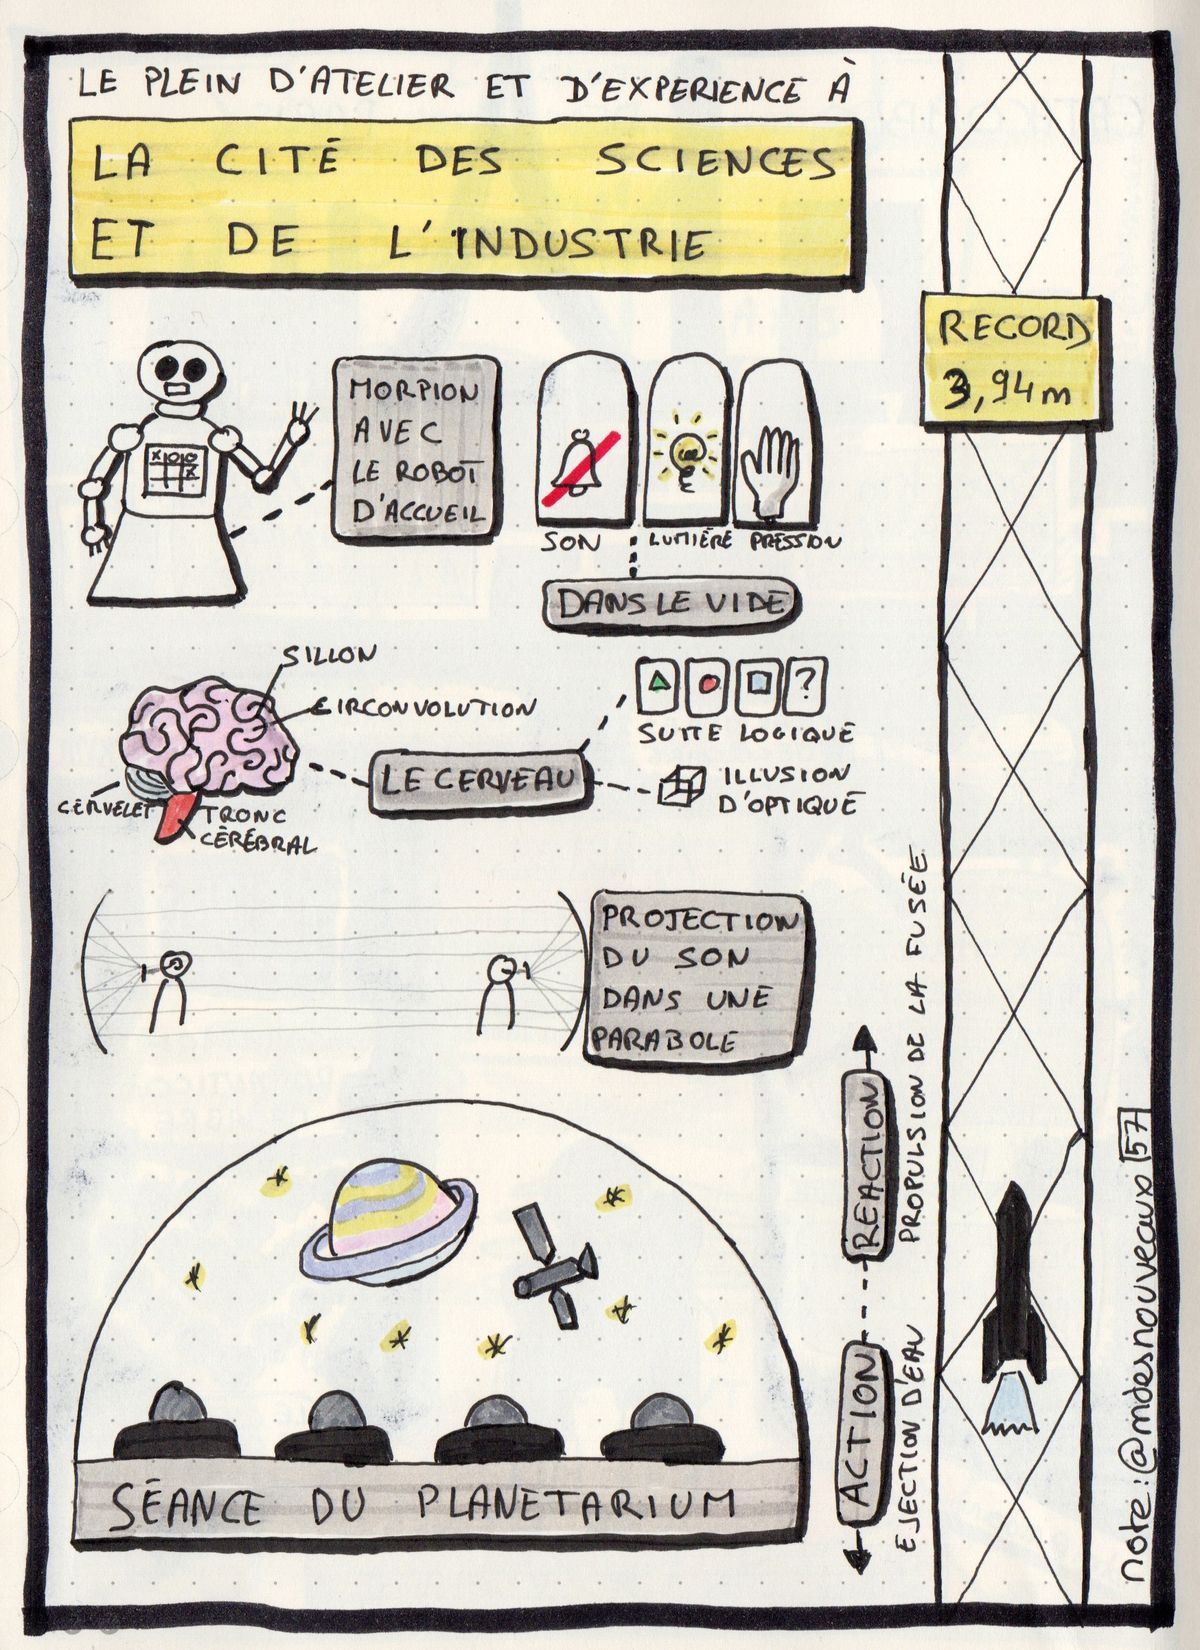 LE PLEIN D'ATELIER ET D'EXPERIENCE À
LA CITÉ DES SCIENCES
ET DE L'INDUSTRIE
RECORD
3,94m
MORPION
AVEC
LE ROBOT
D'ACCUEIL
SON
LUMIÈRE
PRESSION
DANS LE VIDE
SILLON
CIRCONVOLUTION
CERVELET
TRONC
CÉRÉBRAL
LE CERVEAU
?
SUITE LOGIQUE
ILLUSION
D'OPTIQUE
PROJECTION
DU SON
DANS UNE
PARABOLE
RÉACTION
PROPULSION DE LA FUSÉE
ACTION
EJECTION D'EAU
SÉANCE DU PLANETARIUM
note:@mdesnouveaux 57